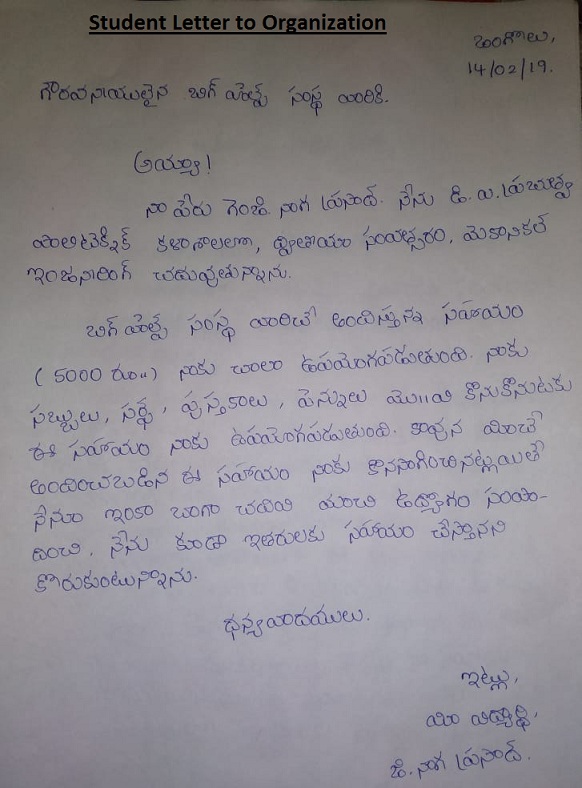 Student Letter to Organization
ఒంగోలు,
14/02/19.
గౌరవనీయులైన బిగ్ హెల్ప్ సంస్థ వారికి.
అయ్యా!
నా పేరు గెంజి. నాగ ప్రసాద్. నేను డి. ఏ. ప్రభుత్వ
పాలిటెక్నిక్ కళాశాలలో, ద్వితీయ సంవత్సరం, మెకానికల్
ఇంజనీరింగ్ చదువుతున్నాను.
బిగ్ హెల్ప్ సంస్థ వారిచే అందిస్తున్న సహాయం
( 5000 రూ॥) నాకు చాలా ఉపయోగపడుతుంది. నాకు
సబ్బులు, సర్ఫ్, పుస్తకాలు, పెన్నులు మొ॥వి కొనుకొనుటకు
ఈ సహాయం నాకు ఉపయోగపడుతుంది. కావున మీచే
అందించబడిన ఈ సహాయం నాకు కొనసాగించినట్లయితే
నేను ఇంకా బాగా చదివి మంచి ఉద్యోగం సంపా-
దించి, నేను కూడా ఇతరులకు సహాయం చేస్తానని
కోరుకుంటున్నాను.
ధన్యవాదములు.
ఇట్లు,
మీ విద్యార్థి,
జి. నాగ ప్రసాద్.